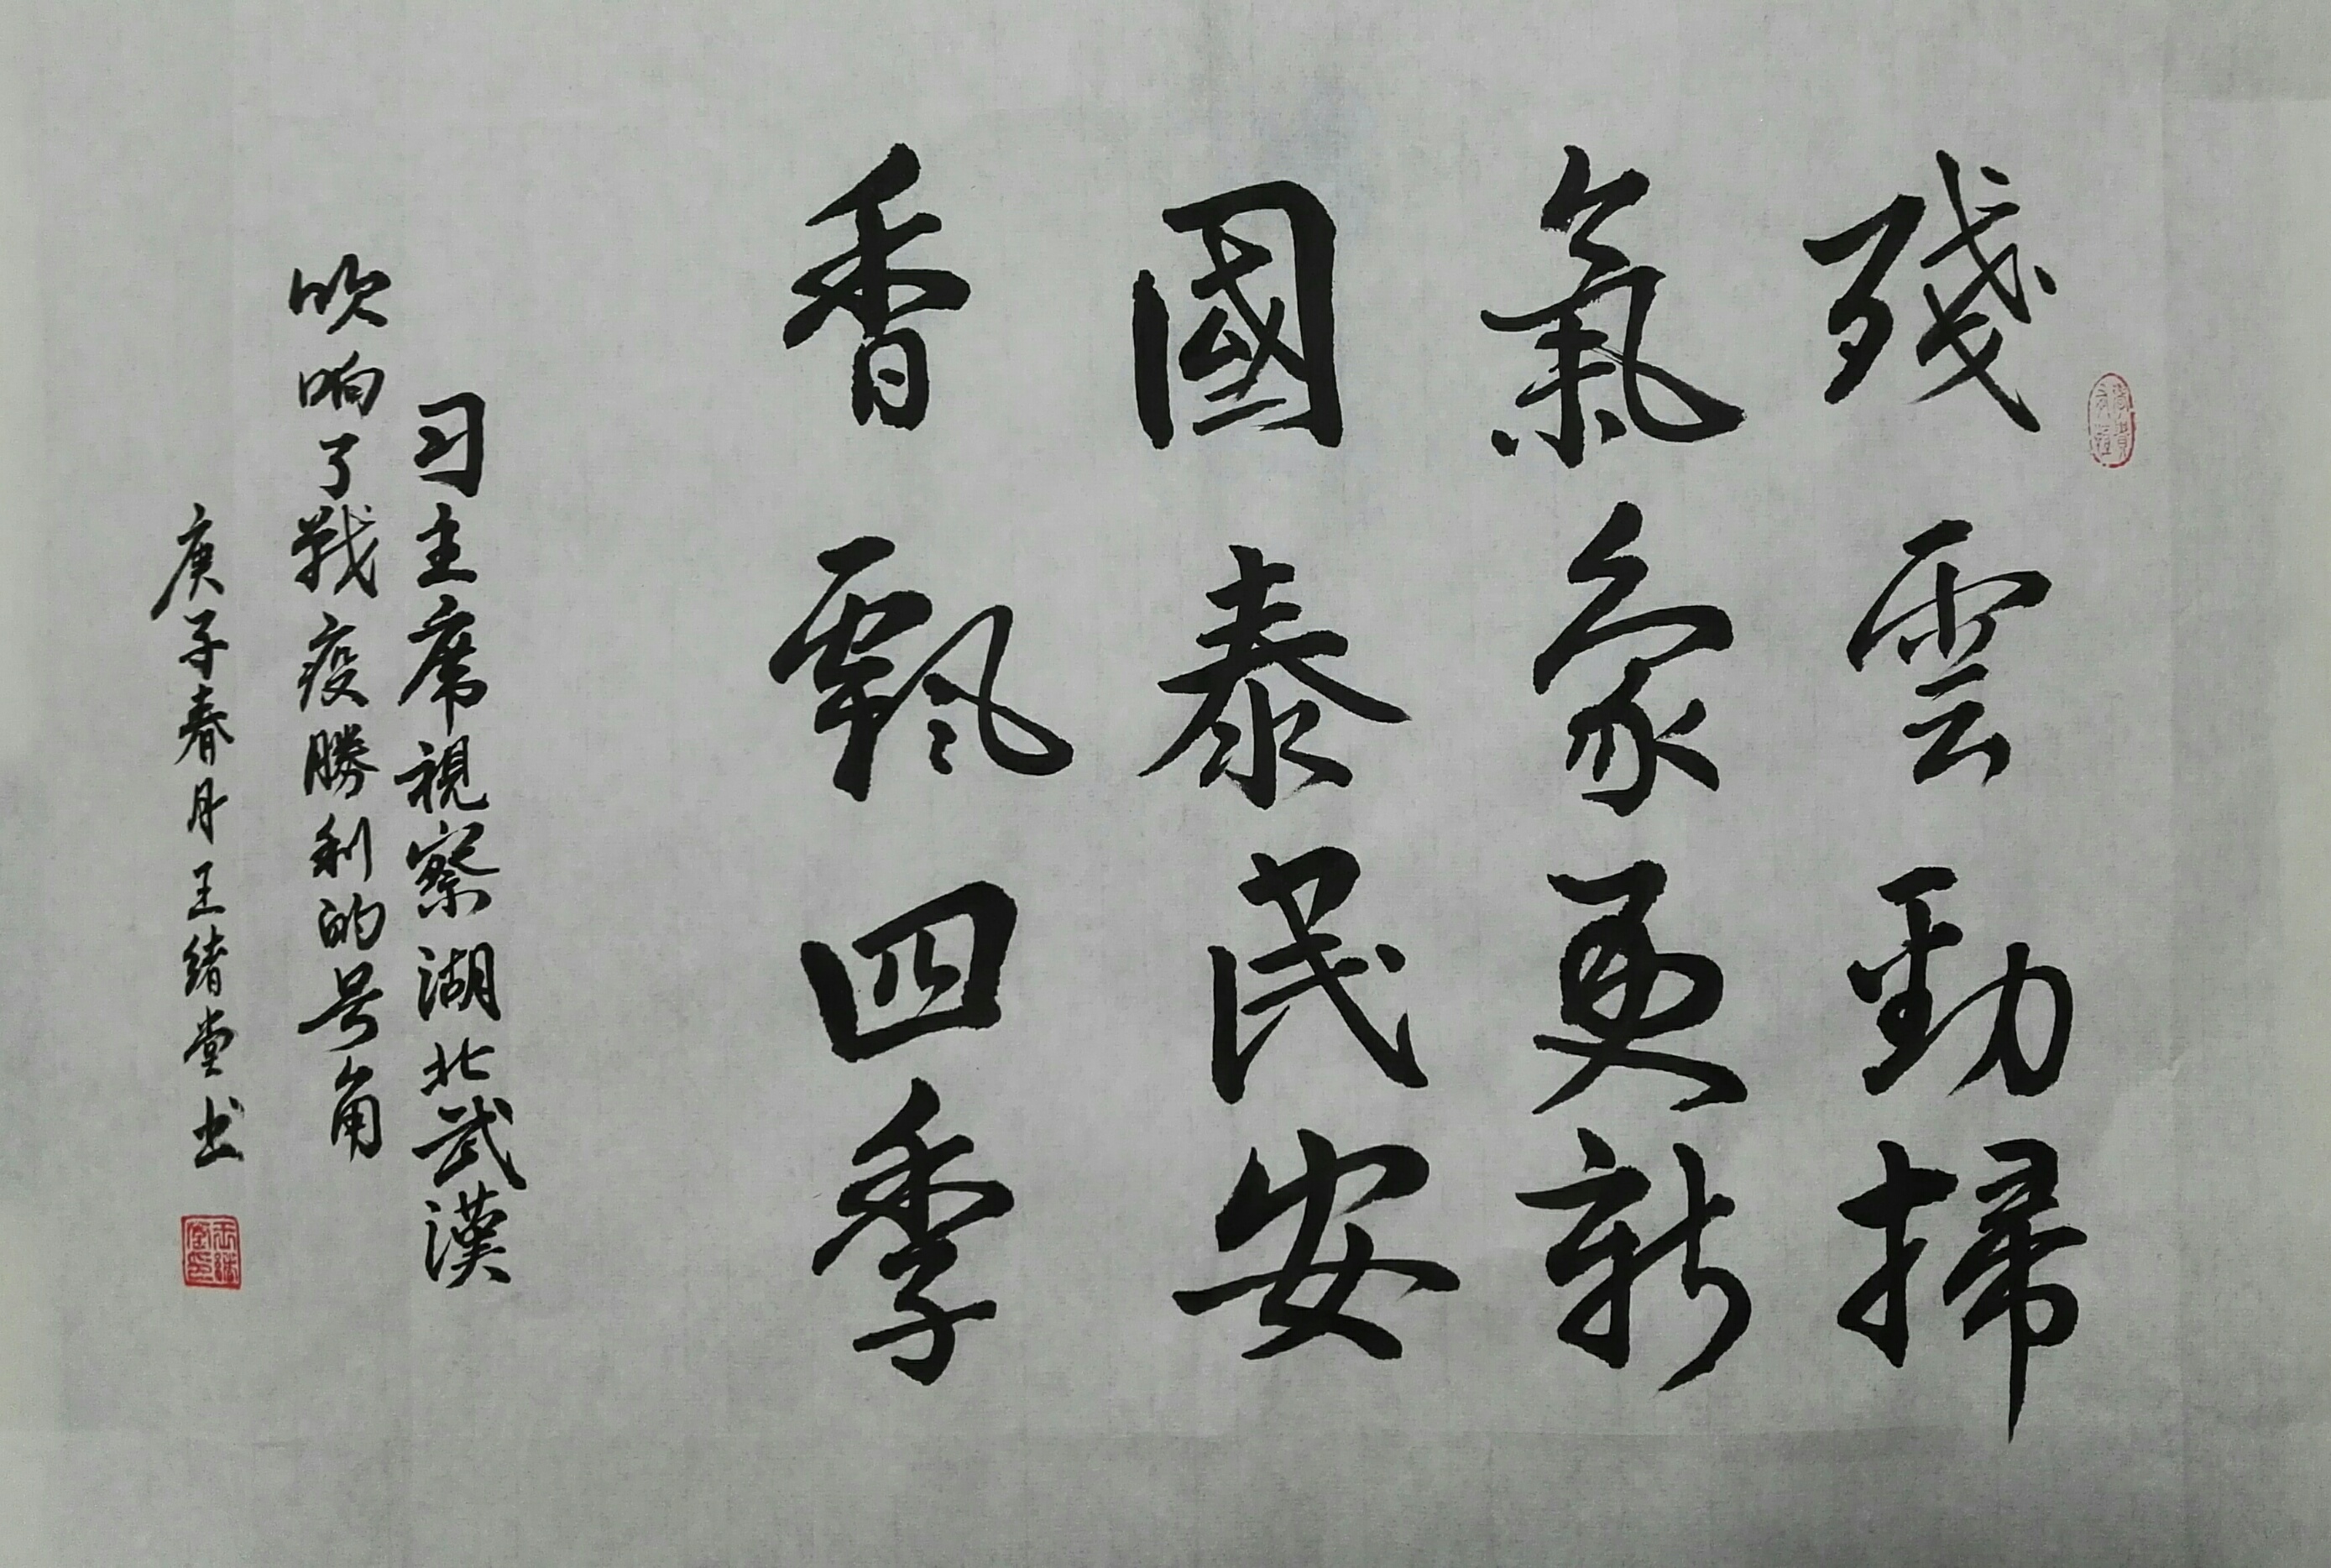 殘雲勁掃
氣象更新
國泰民安
香飄四季
习主席視察湖北武漢
吹响了戰疫勝利的号角
庚子春月王緒堂书